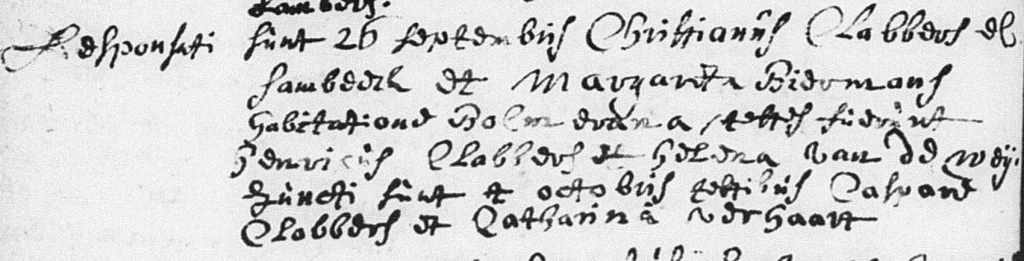 Lambers.
Desponsati sunt 26 septembris Christianus Clabbers ex
sambeeck et Margareta Biermans
habitatione Holm testes fuerunt
Henricus Clabbers et Helena van de Weÿ.
Juncti sunt octobris testibus Casparo
Clabbers et Catharina verhaart